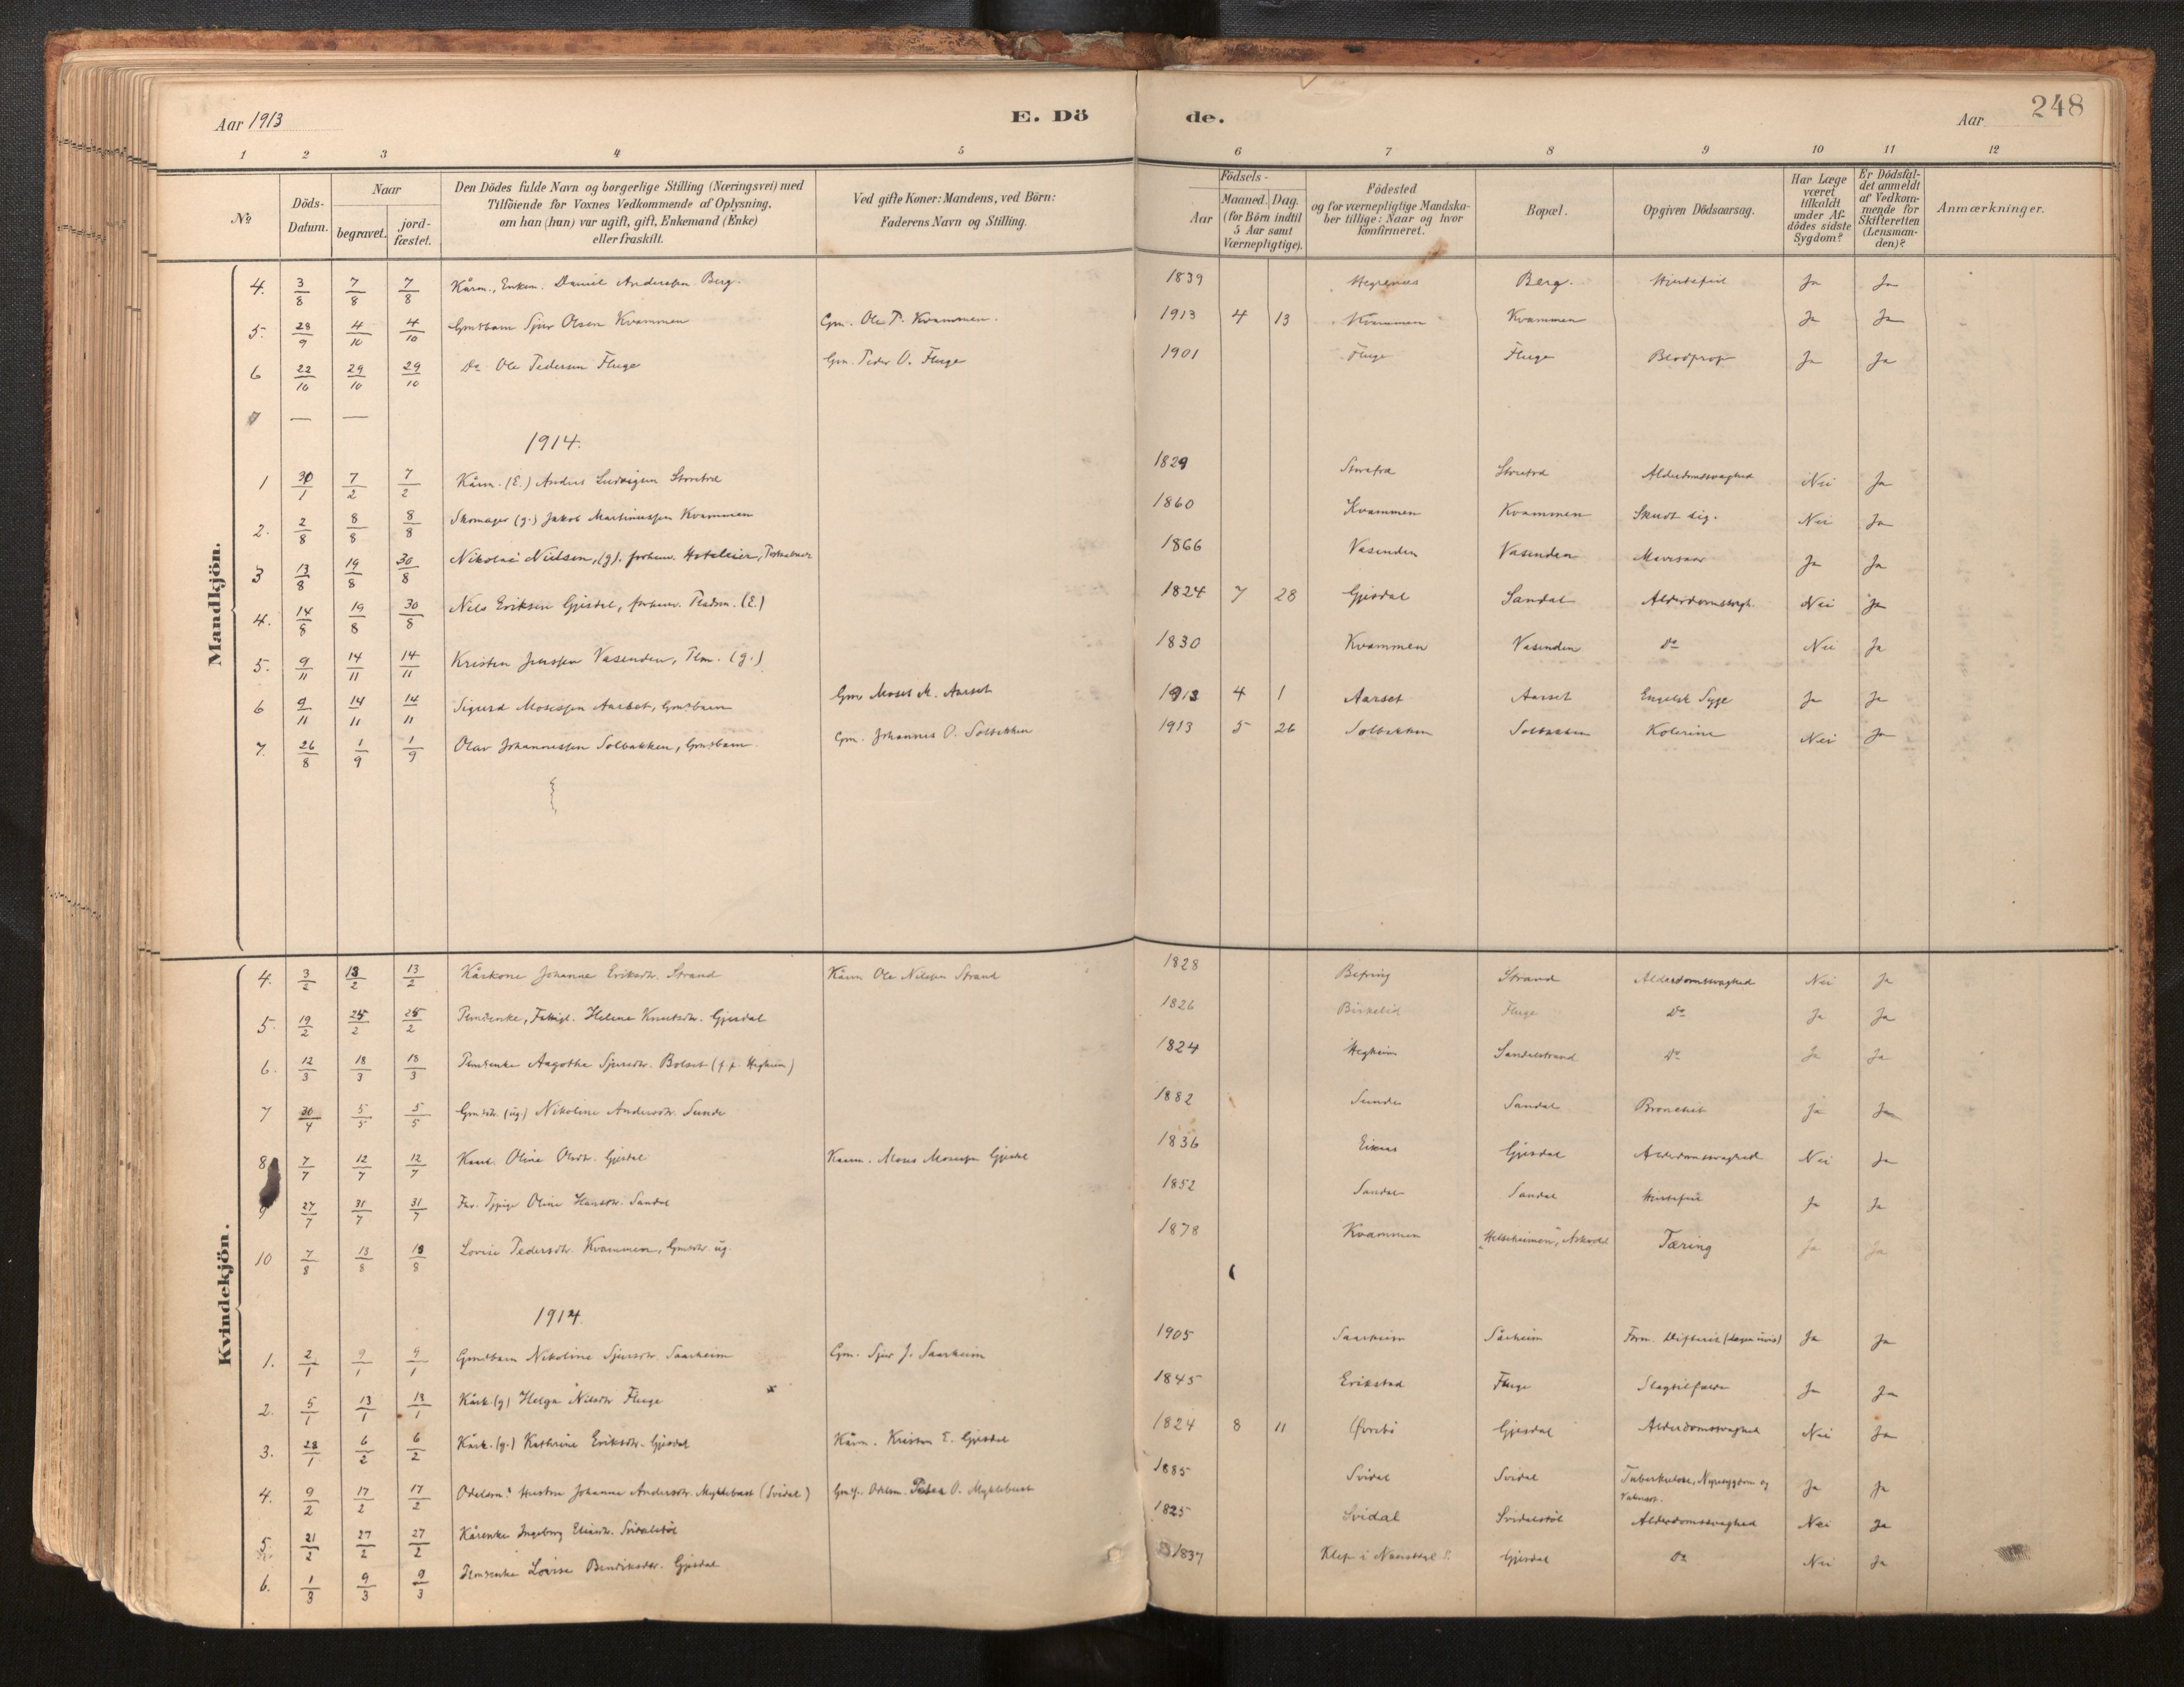 248
Aar 1913 E. Dö de. Aar
1 2 3 4 5 6 7 8 9 10 11 12
No
Döds-Datum.
Naar
begravet.
jord-fæstet.
Den Dödes fulde Navn og borgerlige Stilling (Næringsvei) med
Tilföiende for Voxnes Vedkommende af Oplysning,
om han (hun) var ugift, gift, Enkemand (Enke)
eller fraskilt.
Ved gifte Koner: Mandens, ved Börn:
Faderens Navn og Stilling.
Födsels-
Aar
Maaned. Dag.
(for Börn indtil
5 Aar samt
Værnepligtige).
Födested
og for værnepligtige Mandska-
ber tillige: Naar og hvor
konfirmeret.
Bopæl.
Opgiven Dödsaarsag.
Har Læge
været
tilkaldt
under Af-
dödes sidste
Sygdom?
Er Dödsfal-
det anmeldt
af Vedkom-
mende for
Skifteretten
(Lensman-
den)?
Anmærkninger.
Mandkjön.
4. 3/8 7/8 7/8 Kårm., Enkem. Daniel Anderssen Berg. 1839 Hegrenes Berg. Hjertefeil Ja Ja
5. 28/9 4/10 4/10 Gmdbarn Sjur Olsen Kvammen Gm. Ole P. Kvammen. 1913 4 13 Kvammen Kvammen Ja Ja
6 22/10 29/10 29/10 Do Ole Pedersen Fluge Gm. Peder O. Fluge 1901 Fluge Fluge Blodprop Ja Ja
7 — —
1914.
1 30/1 7/2 7/2 Kårm. (E.) Anders Ludvigsen 1829 Alderdomssvaghed Nei Ja
2. 2/8 8/8 8/8 Skomager (g.) Jakob Martinussen Kvammen 1860 Kvammen Kvammen Skudt sig. Nei Ja
3 13/8 19/8 30/8 Nikolai Nielsen, (g). forhenv. Hoteleier, 1866 Vasenden Vasenden Mavesaar Ja Ja
4. 14/8 19/8 30/8 Nils Eriksen Gjesdal, forhenv. (E.) 1824 7 28 Gjesdal Sandal Alderdomssvagh. Nei Ja
5. 9/11 14/11 14/11 Kristen Jenssen Vasenden, Plm. (g.) 1830 Kvammen Vasenden Do Nei Ja
6 9/11 14/11 14/11 Sigurd Mosessen Aarset, Gmdbarn Gm Moses M. Aarset 1913 4 1 Aarset Aarset Engelsk Syge Ja Ja
7. 26/8 1/9 1/9 Olav Johannessen Solbakken, Gmdbarn. Gm. Johannes O. Solbakken 1913 5 26 Solbakken Solbakken Kolerine Nei Ja
Kvindekjön.
4. 3/2 13/2 13/2 Kårkone Johanne Eriksdtr. Strand Kårm Ole Nilssen Strand 1828 Befring Strand Alderdomssvaghed Nei Ja
5. 19/2 25/2 25/2 Helene Knutsdtr. Gjesdal 1826 Birkelid Fluge Do Ja Ja
6. 12/3 18/3 18/3 Aagothe Sjursdtr. Bolset (f. p. Hegheim) 1824 Hegheim Sandalstrand Do Ja Ja
7 30/4 5/5 5/5 Gmdtr. (ug.) Nikoline Andersdtr. Sunde 1882 Sunde Sandal Bronchit Ja Ja
8 7/7 12/7 12/7 Olina Olsdtr. Gjesdal Kaarm. Moses Mosessen Gjesdal 1836 Eikaas Gjesdal Alderdomssvaghed Nei Ja
9 27/7 31/7 31/7 Oline Hansdtr. Sandal 1852 Sandal Sandal Hjertefeil Ja Ja
10 7/8 13/8 13/8 Lovise Pedersdtr. Kvammen, Gmdtr. ug. 1878 Kvammen "Helseheimen", Askvoll Tæring Ja Ja
1914.
1. 2/1 9/1 9/1 Gmdbarn Nikoline Sjursdtr. Saarheim Gm. Sjur J. Saarheim 1905 Saarheim Sårheim Form. Difterit (Lægen uvis) Ja Ja
2. 5/1 13/1 13/1 Kårk (g) Helga Nilsdtr Fluge x 1845 Erikstad Fluge Slagtilfælde Ja Ja
3. 28/1 6/2 6/2 Kårk. (g.) Kathrine Eriksdtr. Gjesdal Kårm. Kristen E. Gjesdal 1824 8 11 Øvrebö Gjesdal Alderdomssvaghed Nei Ja
4. 9/2 17/2 17/2 Odelsm.s Hustru Johanne Andersdtr. Myklebust (Svidal) Odelsm. Peder O. Myklebust 1885 Svidal Svidal Tuberkulose, Nyresygdom og Ja Ja
5. 21/2 27/2 27/2 Kårenke Ingeborg Eliasdtr. Svidalstöl 1825 Svidal Svidalstöl Alderdomssvaghed Nei Ja
6. 1/3 9/3 9/3 Lovise Bendiksdtr. Gjesdal 1837 Klep i Naustdal P. Gjesdal Do Nei Ja